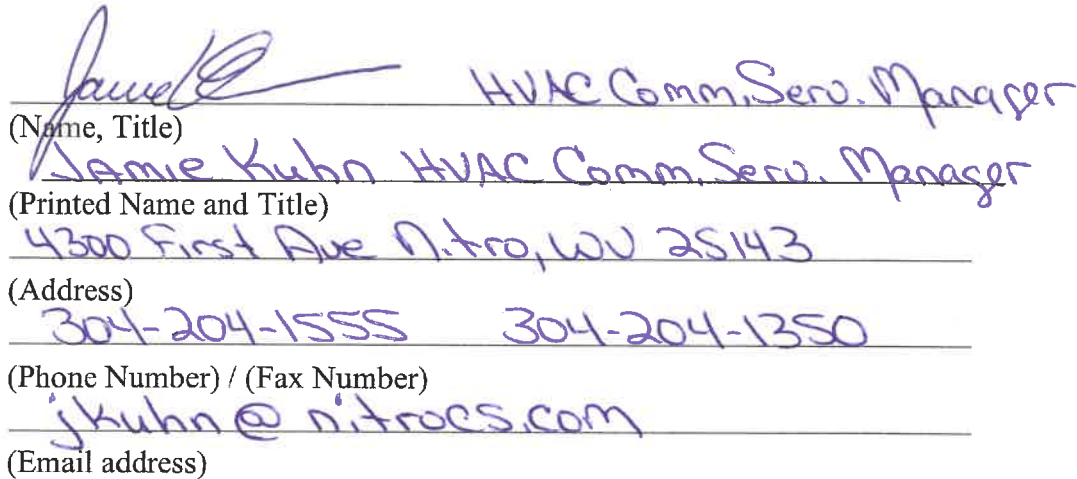 HVAC Comm. Serv. Manager
(Name, Title)
Jamie Kuhn HVAC Comm. Serv. Manager
(Printed Name and Title)
4300 First Ave Nitro, WV 25143
(Address)
304-204-1555 304-204-1350
(Phone Number) / (Fax Number)
jkuhn@nitrocs.com
(Email address)